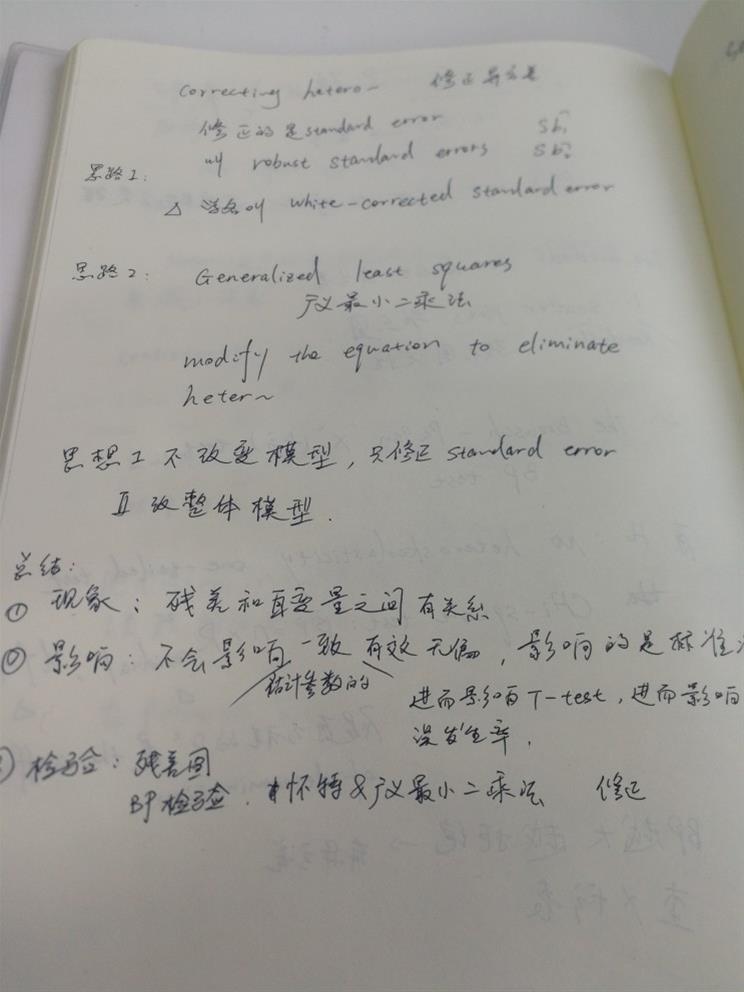 Correcting hetero~ 修正异方差
修正的是standard error Sb̂₁
叫 robust standard errors Sb̂₂
思路1:
△ 学名叫 White-corrected standard error
思路2: Generalized least squares
广义最小二乘法
modify the equation to eliminate
heter~
思想I 不改变模型,只修正 standard error
II 改整体模型.
总结:
① 现象: 残差和自变量之间有关系
② 影响: 不会影响一致有效无偏, 影响的是标准
估计参数的
进而影响T-test, 进而影响
误发生率.
检验: 残差图
BP检验. 怀特&广义最小二乘法 修正